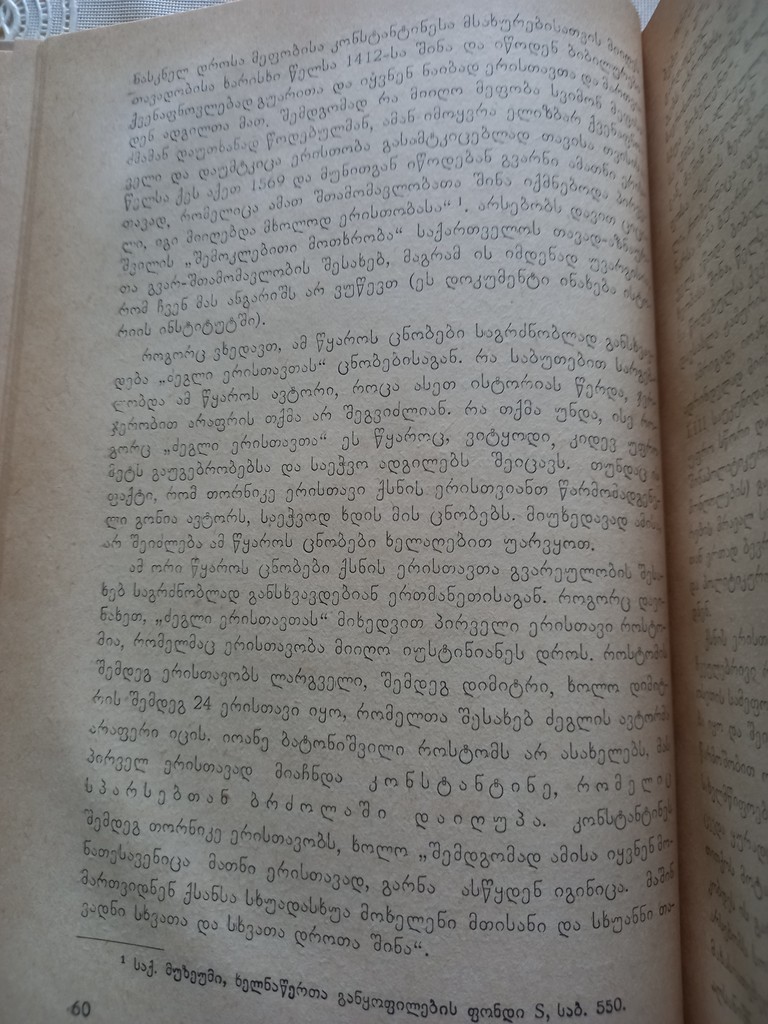 ნასკნელ დროსა მეფობისა კონსტანტინესა მსახურებისათვის
თავადობისა ხარისხი წელსა 1412-სა შინა და იწოდენ
ქვენაფნოვლებად გუარითა და იყვნენ ნაიბად ერისთავთა და
დენ ადგილთა მათ. შემდგომად რა მიიღო მეფობა სვიმონ
ძმამან დაუთხანად წოდებულმან, ამან იმოყვრა ელიზბარ
ველი და დაუმტკიცა ერისთობა გასამტკიცებლად თავისა
წელსა ქეს აქეთ 1569 და მუნითგან იწოდებან გვარნი ამათნი
თავად, რომელიცა ამათ შთამომავლობათა შინა იქმნებოდა
ლი, იგი მიიღებდა მხოლოდ ერისთობასა“ ¹. არსებობს დავით
შვილის „შემოკლებითი მოთხრობა“ საქართველოს
თა გვარ-შთამომავლობის შესახებ, მაგრამ ის იმდენად
რომ ჩვენ მას ანგარიშს არ ვუწევთ (ეს დოკუმენტი ინახება
რიის ინსტიტუტში).
როგორც ვხედავთ, ამ წყაროს ცნობები საგრძნობლად
დება „ძეგლი ერისთავთას“ ცნობებისაგან. რა საბუთებით
ლობდა ამ წყაროს ავტორი, როცა ასეთ ისტორიას წერდა,
ჯერობით არაფრის თქმა არ შეგვიძლიან. რა თქმა უნდა, ისე
გორც „ძეგლი ერისთავთა“ ეს წყაროც, ვიტყოდი, კიდევ უფრო
მეტს გაუგებრობებსა და საეჭვო ადგილებს შეიცავს. თუნდაც
ფაქტი, რომ თორნიკე ერისთავი ქსნის ერისთვიანთ წარმომადგენე-
ლი გონია ავტორს, საეჭვოდ ხდის მის ცნობებს. მიუხედავად ამისა
არ შეიძლება ამ წყაროს ცნობები ხელაღებით უარვყოთ.
ამ ორი წყაროს ცნობები ქსნის ერისთავთა გვარეულობის შესა-
ხებ საგრძნობლად განსხვავდებიან ერთმანეთისაგან. როგორც
ნახეთ, „ძეგლი ერისთავთას“ მიხედვით პირველი ერისთავი როსტო-
მია, რომელმაც ერისთავობა მიიღო იუსტინიანეს დროს. როსტომის
შემდეგ ერისთავობს ლარგველი, შემდეგ დიმიტრი, ხოლო დიმიტ-
რის შემდეგ 24 ერისთავი იყო, რომელთა შესახებ ძეგლის ავტორმა
არაფერი იცის. იოანე ბატონიშვილი როსტომს არ ასახელებს, მას
პირველ ერისთავად მიაჩნდა კონსტანტინე, რომელიც
სპარსებთან ბრძოლაში დაიღუპა. კონსტანტინეს
შემდეგ თორნიკე ერისთავობს, ხოლო „შემდგომად ამისა იყვნენ მო-
ნათესავენიცა მათნი ერისთავად, გარნა ასწყდენ იგინიცა. მაშინ
მართვიდნენ ქსანსა სხუადასხუა მოხელენი მთისანი და სხუანნი თა-
ვადნი სხვათა და სხვათა დროთა შინა“.
¹ საქ. მუზეუმი, ხელნაწერთა განყოფილების ფონდი S, საბ. 550.
60